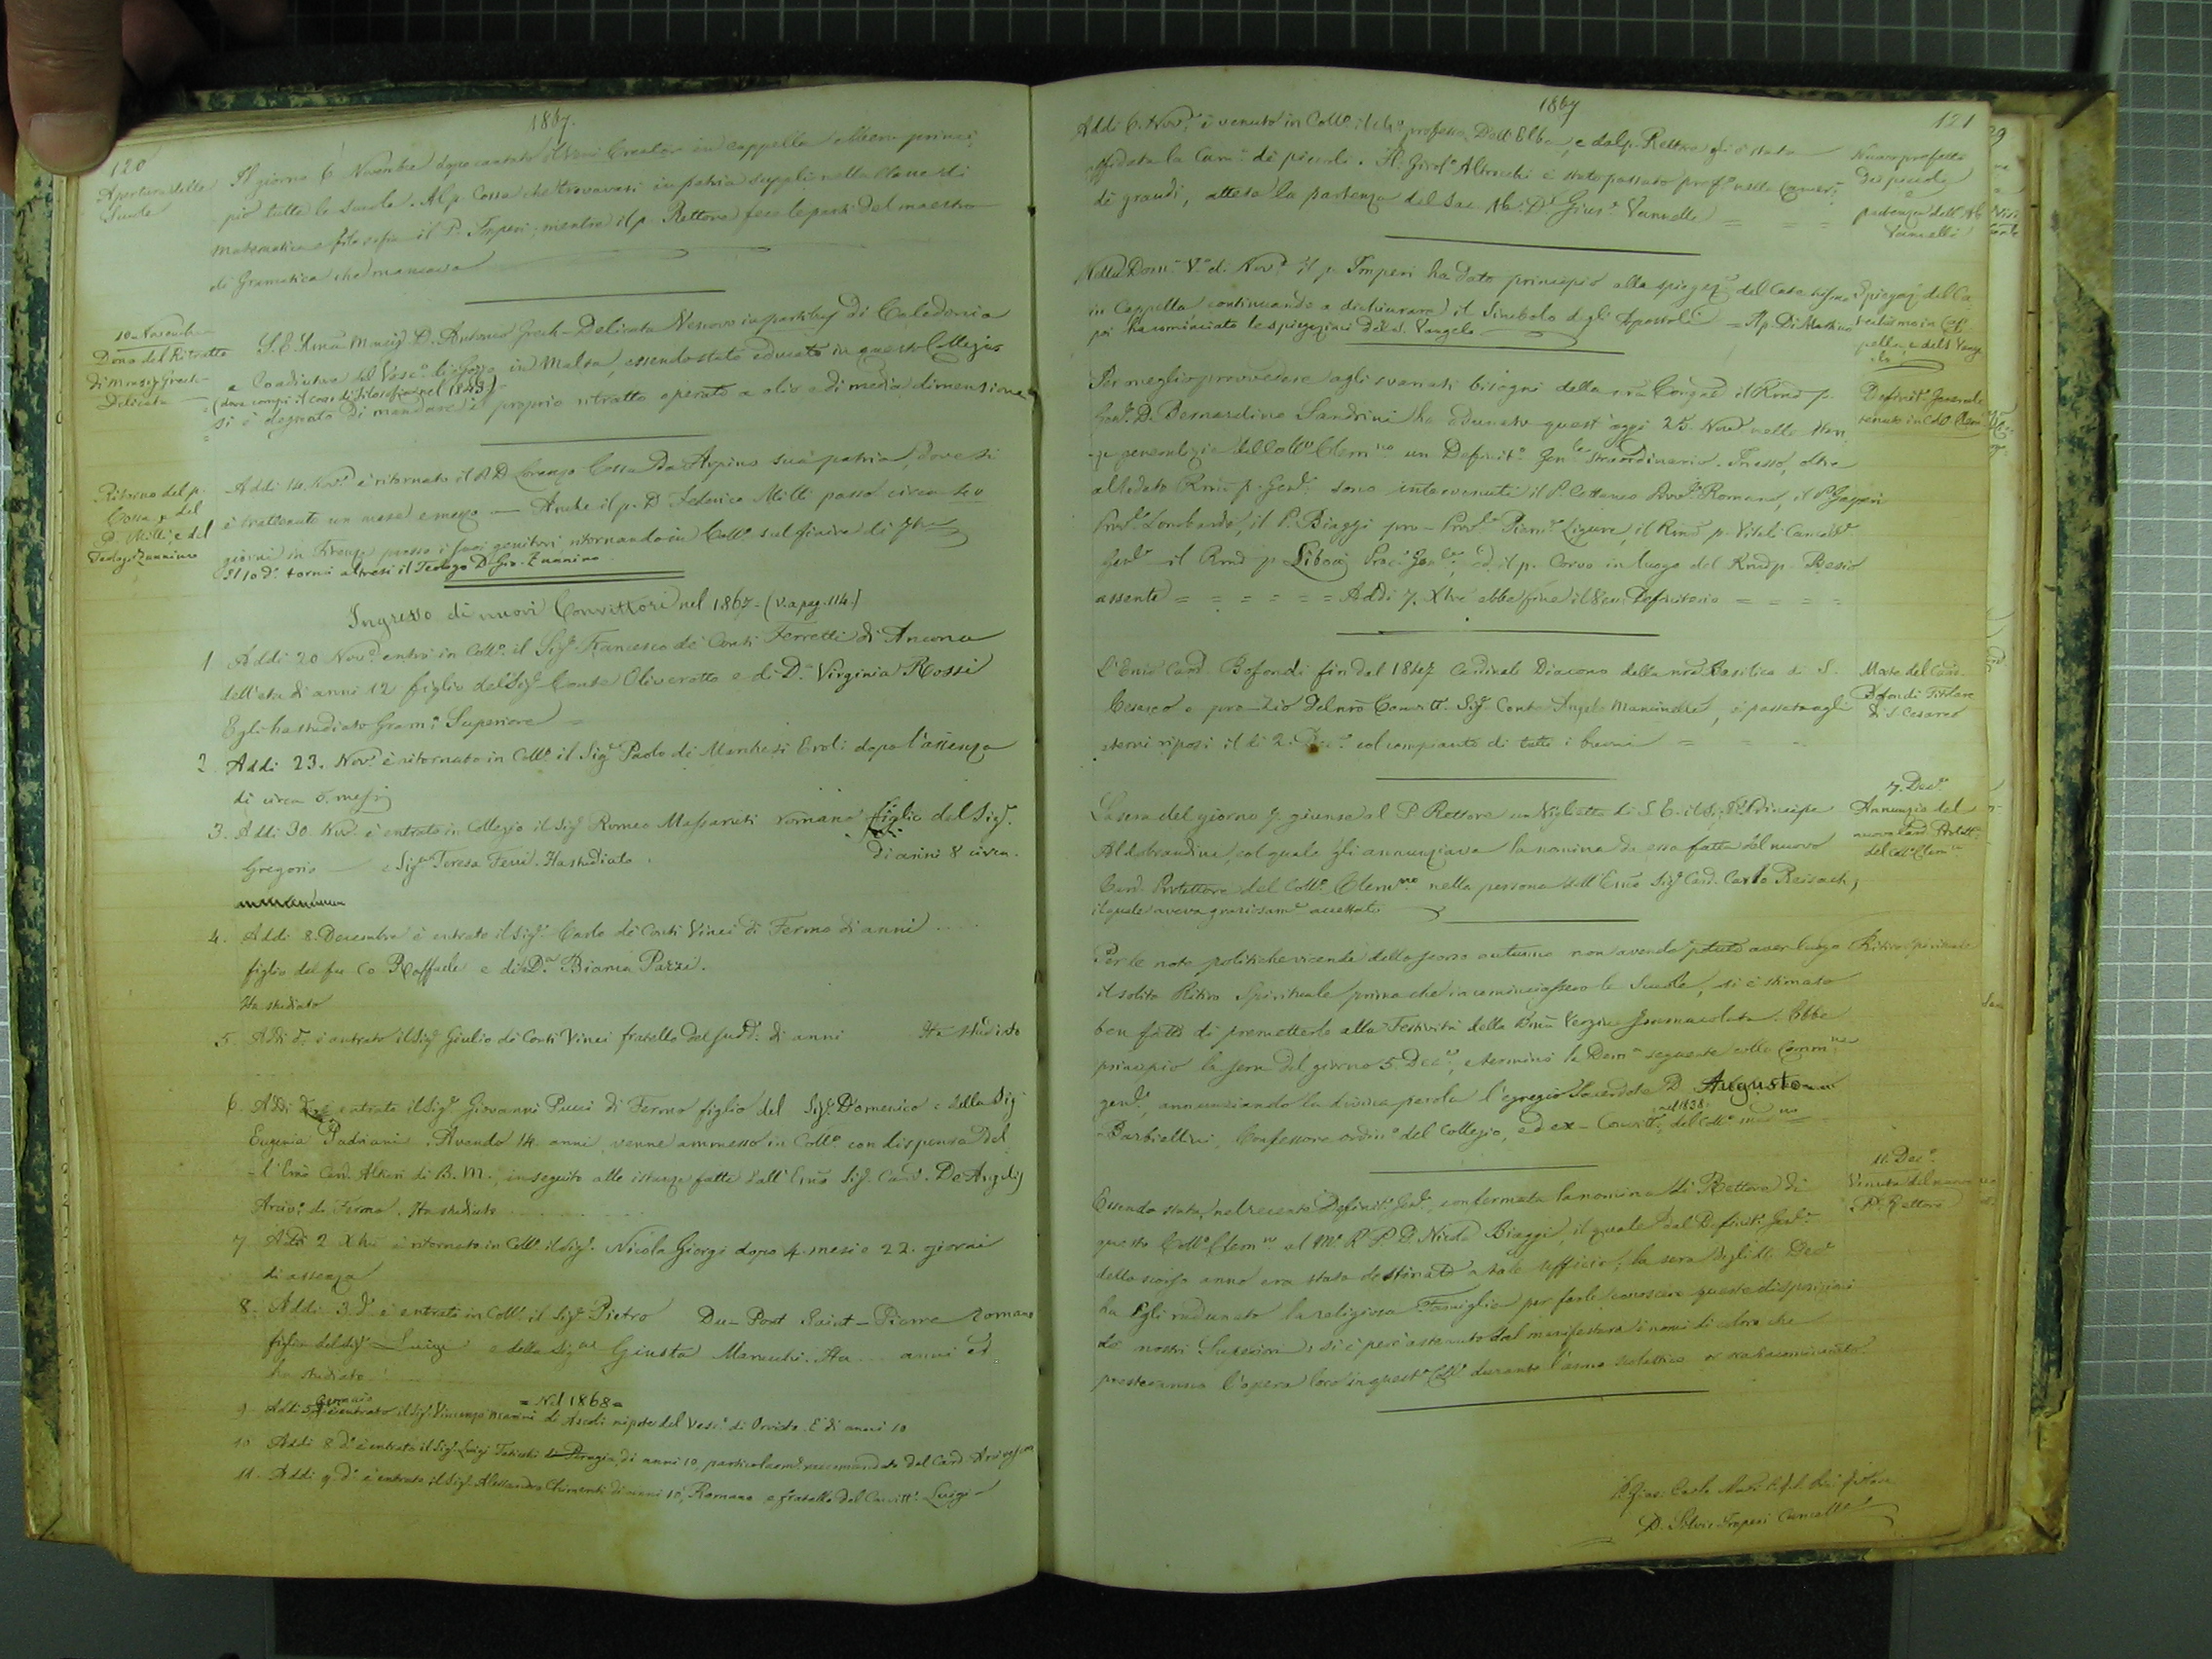 1867.
120
Apertura delle
Scuole
Il giorno 6 Novembre dopo cantato il Veni Creator in cappella ebbero princi-
pio tutte le Scuole. Al p. Cossa che trovavasi in patria supplì nella classe di
Matematica e filosofia il P. Imperi; mentre il p. Rettore fece le parti del maestro
di Gramatica che mancava
10 Novembre
Dono del Ritratto
di Monsig. Grech-
Delicata
S. E. Rma Monsig. D. Antonio Grech-Delicata Vescovo in partibus di Caledonia
e Coadiutore del Vesc.o di Gozzo in Malta, essendo stato educato in questo Collegio
(dove compì il corso di filosofia nel 1843)
si è degnato di mandare il proprio ritratto operato a olio e di media dimensione
Ritorno del p.
Cossa e del
P. Milli e del
Teologo Zunnino
Addi 14 Nov.e è ritornato il P. D. Lorenzo Cossa da Arpino sua patria, dove si
è trattenuto un mese e mezzo — Anche il p. D. Federico Milli passò circa
giorni in Firenze presso i suoi genitori ritornando in Coll.o sul finire di
Il 10 d.o tornò altresì il Teologo D. Gio. Zunnino
Ingresso di nuovi Convittori nel 1867 - (V. a pag. 114.)
1 Addi 20 Nov.e entrò in Coll.o il Sig.r Francesco de' Conti Ferretti di Ancona
dell'età di anni 12 figlio del Sig.r Conte Oliverotto e di D.a Virginia Rossi
Egli ha studiato Gram.a Superiore
2. Addi 23. Nov.e è ritornato in Coll.o il Sig.r Paolo de' Marchesi Eroli dopo l'assenza
di circa 5. mesi
3. Addi 30 Nov. è entrato in Collegio il Sig.r Romeo Massaruti romano figlio del Sig.r
di anni 8 circa.
Gregorio — e Sig.ra Teresa Ferri. Ha studiato.
4. Addi 8. Decembre è entrato il Sig.r Carlo de' Conti Vinci di Fermo di anni ....
figlio del fu Co. Raffaele e di D.a Bianca Pazzi.
Ha studiato
5. Addi d.o è entrato il Sig.r Giulio de' Conti Vinci fratello del sud.o di anni Ha studiato
6. Addi è entrato il Sig.r Giovanni Pucci di Fermo figlio del Sig.r Domenico e della Sig.
Eugenia Padriani. Avendo 14 anni venne ammesso in Coll.o con dispensa del-
-l'Emo Card. Altieri di B. M., in seguito alle istanze fatte dall'Emo Sig. Card. De Angelis
Arciv.o di Fermo. Ha studiato ............
7 Addi 2 Xbre è ritornato in Coll.o il Sig.r Nicola Giorgi dopo 4. mesi e 22. giorni
di assenza
8. Addi 3 d.o è entrato in Coll.o il Sig.r Pietro Du-Pont Saint-Pierre romano
figlio del Sig.r Luigi e della Sig.ra Giusta Marucchi. Ha .... anni ed
ha studiato
= Nel 1868 =
9 Addi 5 Gennaio è entrato il Sig.r Vincenzo Marini di Ascoli nipote del Vesc.o di Orvieto. È di anni 10
10 Addi 8 d.o è entrato il Sig.r Luigi Taticchi di Perugia, di anni 10, particolarm.e raccomandato dal Card.
11. Addi 9 d.o è entrato il Sig.r Alessandro Chimenti di anni 10, Romano e fratello del Convitt.e Luigi
1867
121
Addi 6. Nov.e è venuto in Coll.o il professo Dell'Elba, e dal p. Rettore gli è stata
affidata la Cam.a de' piccoli. Il Girol.o Altrocchi è stato passato pref.o nella Camer.a
di grandi, attesa la partenza del Sac. Ab. D. Gius.e Vannelli = = =
Nuovo prefetto
de' piccoli
e
partenza dell'Ab.
Vannelli
Nella Dom.a V.a di Nov.e il p. Imperi ha dato principio alla spiegaz.e del Catechismo
in Cappella continuando a dichiarare il Simbolo degli Apostoli = Il p. Di Martino
poi ha cominciato le spiegazioni del S. Vangelo
Spiegaz. del Ca
techismo in Cap
pella e del S. Vange
lo
Per meglio provvedere agli svariati bisogni della nra Congne il Rmo p.
Gen.le D. Bernardino Sandrini ha adunato quest'oggi 25. Nov.e nelle stan
ze generalizie del Coll.o Clem.no un Definit.o Gen.le straordinario. In esso, oltre
al lodato Rmo p. Gen.le sono intervenuti il P. Cattaneo Prov.le Romano, il P. Gaspari
Prov.le Lombardo, il P. Biaggi pro-Prov.le Piem.e Ligure, il Rmo p. Vitali Cancell.e
Gen.le - il Rmo p. Libois Proc.e Gen.le; ed il p. Corvo in luogo del Rmo p. Besio
assente = = = = = = Addi 7. Xbre ebbe fine il Ven. Definitorio = = = =
Definit.o Generale
tenuto in Coll.o Clem.
L'Emo Card. Bofondi fin dal 1847 Cardinale Diacono della nra Basilica di S.
Cesareo e pro-Zio del nro Convitt. Sig.r Conte Angelo Manzinelli, è passato agli
eterni riposi il dì 2. Dec.e col compianto di tutti i buoni = = =
Morte del Card.
Bofondi Titolare
di S. Cesareo
La sera del giorno 7. giunse al P. Rettore un Viglietto di S. E. il Sig.r Principe
Aldobrandini, col quale gli annunziava la nomina da esso fatta del nuovo
Card. Protettore del Coll.o Clem.no nella persona dell'Emo Sig. Card. Carlo Reisach,
il quale aveva graziosam.e accettato
7. Dec.e
Annunzio del
nuovo Card. Protett.e
del Coll.o Clem.no
Per le note politiche vicende dello scorso autunno non avendo potuto aver luogo
il solito Ritiro Spirituale prima che incominciassero le Scuole, si è stimato
ben fatto di premetterlo alla Festività della Bma Vergine Immacolata. Ebbe
principio la sera del giorno 5. Dec.e, e terminò la Dom.a seguente colla Comm.ne
gen.le, annunziando la divina parola l'egregio Sacerdote D. Augusto
nel 1838
Barbiellini, Confessore ordin.o del Collegio, ed ex-Convitt.e del Coll.o med.mo
Ritiro spirituale
Essendo stata nel recente Definit.o Gen.le confermata la nomina di Rettore di
questo Coll.o Clem.no al M. R. P. D. Nicolò Biaggi, il quale dal Definit.o Gen.le
dello scorso anno era stato destinato a tale ufficio; la sera degli 11. Dec.e
ha Egli radunato la religiosa Famiglia per farle conoscere queste disposizioni
de' nostri Superiori, si è però astenuto dal manifestare i nomi di coloro che
presteranno l'opera loro in quest.o Coll.o durante l'anno scolastico or ora incominciato
11. Dec.e
Venuta del nuovo
P. Rettore
D. Silvio Imperi Cancell.e